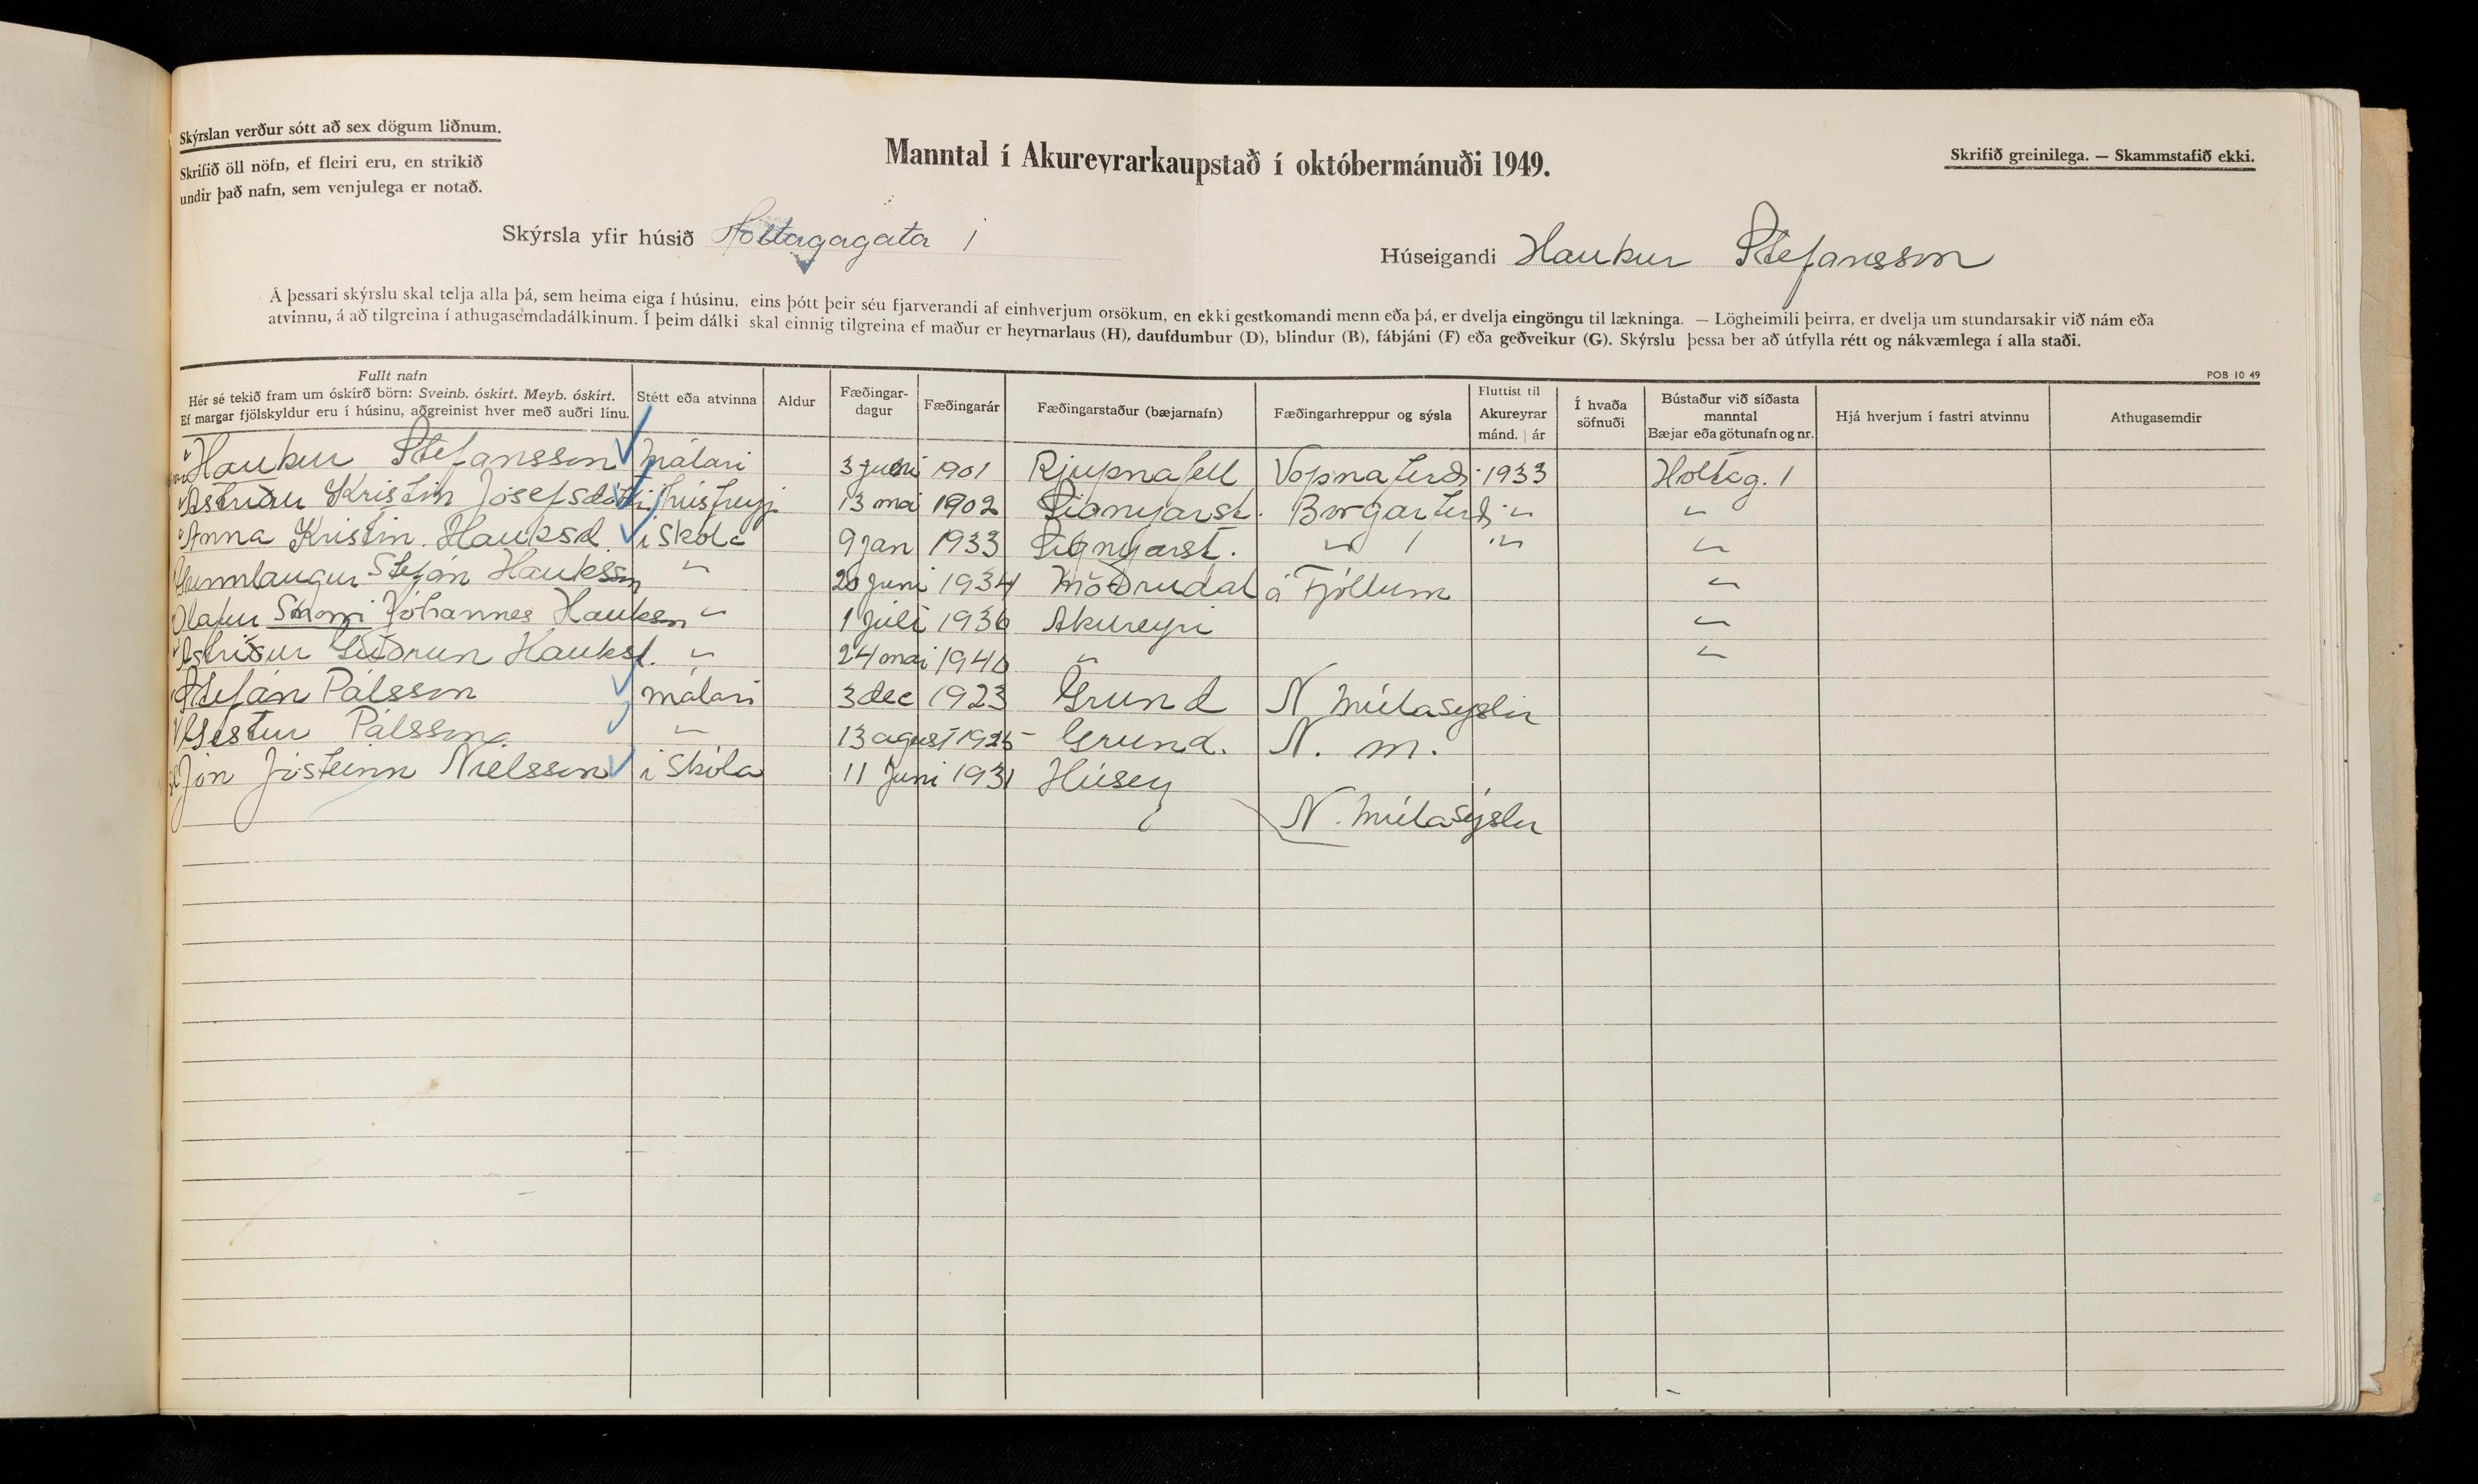 Skýrslan verður sótt að sex dögum liðnum.
Skrifið öll nöfn, ef fleiri eru, en strikið
undir það nafn, sem venjulega er notað.
Manntal í Akureyrarkaupstað í októbermánuði 1949.
Skrifið greinilega. — Skammstafið ekki.
Skýrsla yfir húsið Holtagagata 1
Húseigandi Haukur Stefansson
Á þessari skýrslu skal telja alla þá, sem heima eiga í húsinu, eins þótt þeir séu fjarverandi af einhverjum orsökum, en ekki gestkomandi menn eða þá, er dvelja eingöngu til lækninga. — Lögheimili þeirra, er dvelja um stundarsakir við nám eða
atvinnu, á að tilgreina í athugasemdadálkinum. Í þeim dálki skal einnig tilgreina ef maður er heyrnarlaus (H), daufdumbur (D), blindur (B), fábjáni (F) eða geðveikur (G). Skýrslu þessa ber að útfylla rétt og nákvæmlega í alla staði.
POB 10 49
Fullt nafn
Hér sé tekið fram um óskírð börn: Sveinb. óskírt. Meyb. óskírt.
Ef margar fjölskyldur eru í húsinu, aðgreinist hver með auðri línu.
Stétt eða atvinna
Aldur
Fæðingar-
dagur
Fæðingarár
Fæðingarstaður (bæjarnafn)
Fæðingarhreppur og sýsla
Fluttist til
Akureyrar
mánd. | ár
Í hvaða
söfnuði
Bústaður við síðasta
manntal
Bæjar eða götunafn og nr.
Hjá hverjum í fastri atvinnu
Athugasemdir
Haukur Stefansson málari 3 juni 1901 Rjupnafell Vopnafirði 1933 Holtag. 1
Astridur Kristin Jósefsdóttir húsfreyj 13 mai 1902 Signyarst. Borgarfirð " "
Anna Kristin Hauksd. í Skóla 9 jan 1933 Signyarst. " " "
Gunnlaugur Stefán Hauksson " 20 juni 1934 Möðrudal á Fjöllum "
Olafur Jóhannes Hauksson " 1 júli 1936 Akureyri "
Astriður Guðrun Hauksd. " 24 mai 1940 " "
Stefán Pálsson málari 3 dec 1923 Grund N Múlasyslu
Gestur Pálsson " 13 agust 1925 Grund. N. M.
Jón Jósteinn Nielsson í Skóla 11 Juni 1931 Húsey
N. Múlasýslu